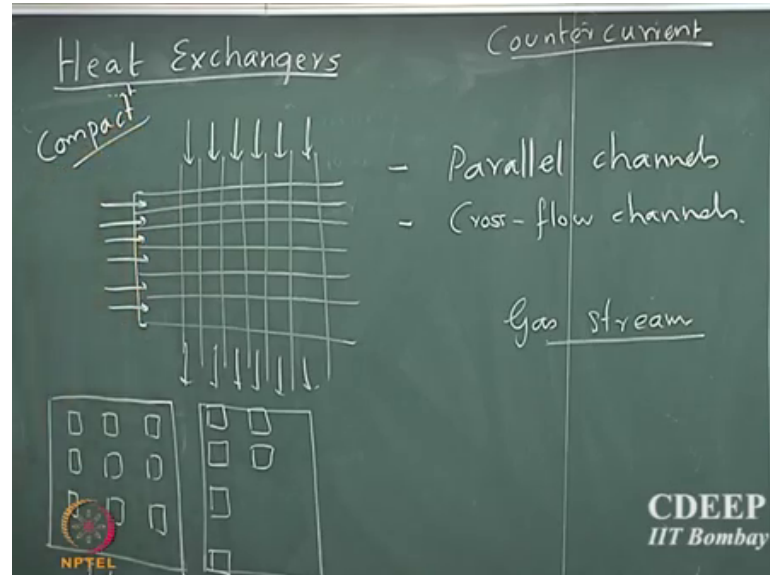 Heat Exchangers
Countercurrent
Compact
- Parallel channels
- Cross-flow channels.
Gas stream
NPTEL
CDEEP
IIT Bombay